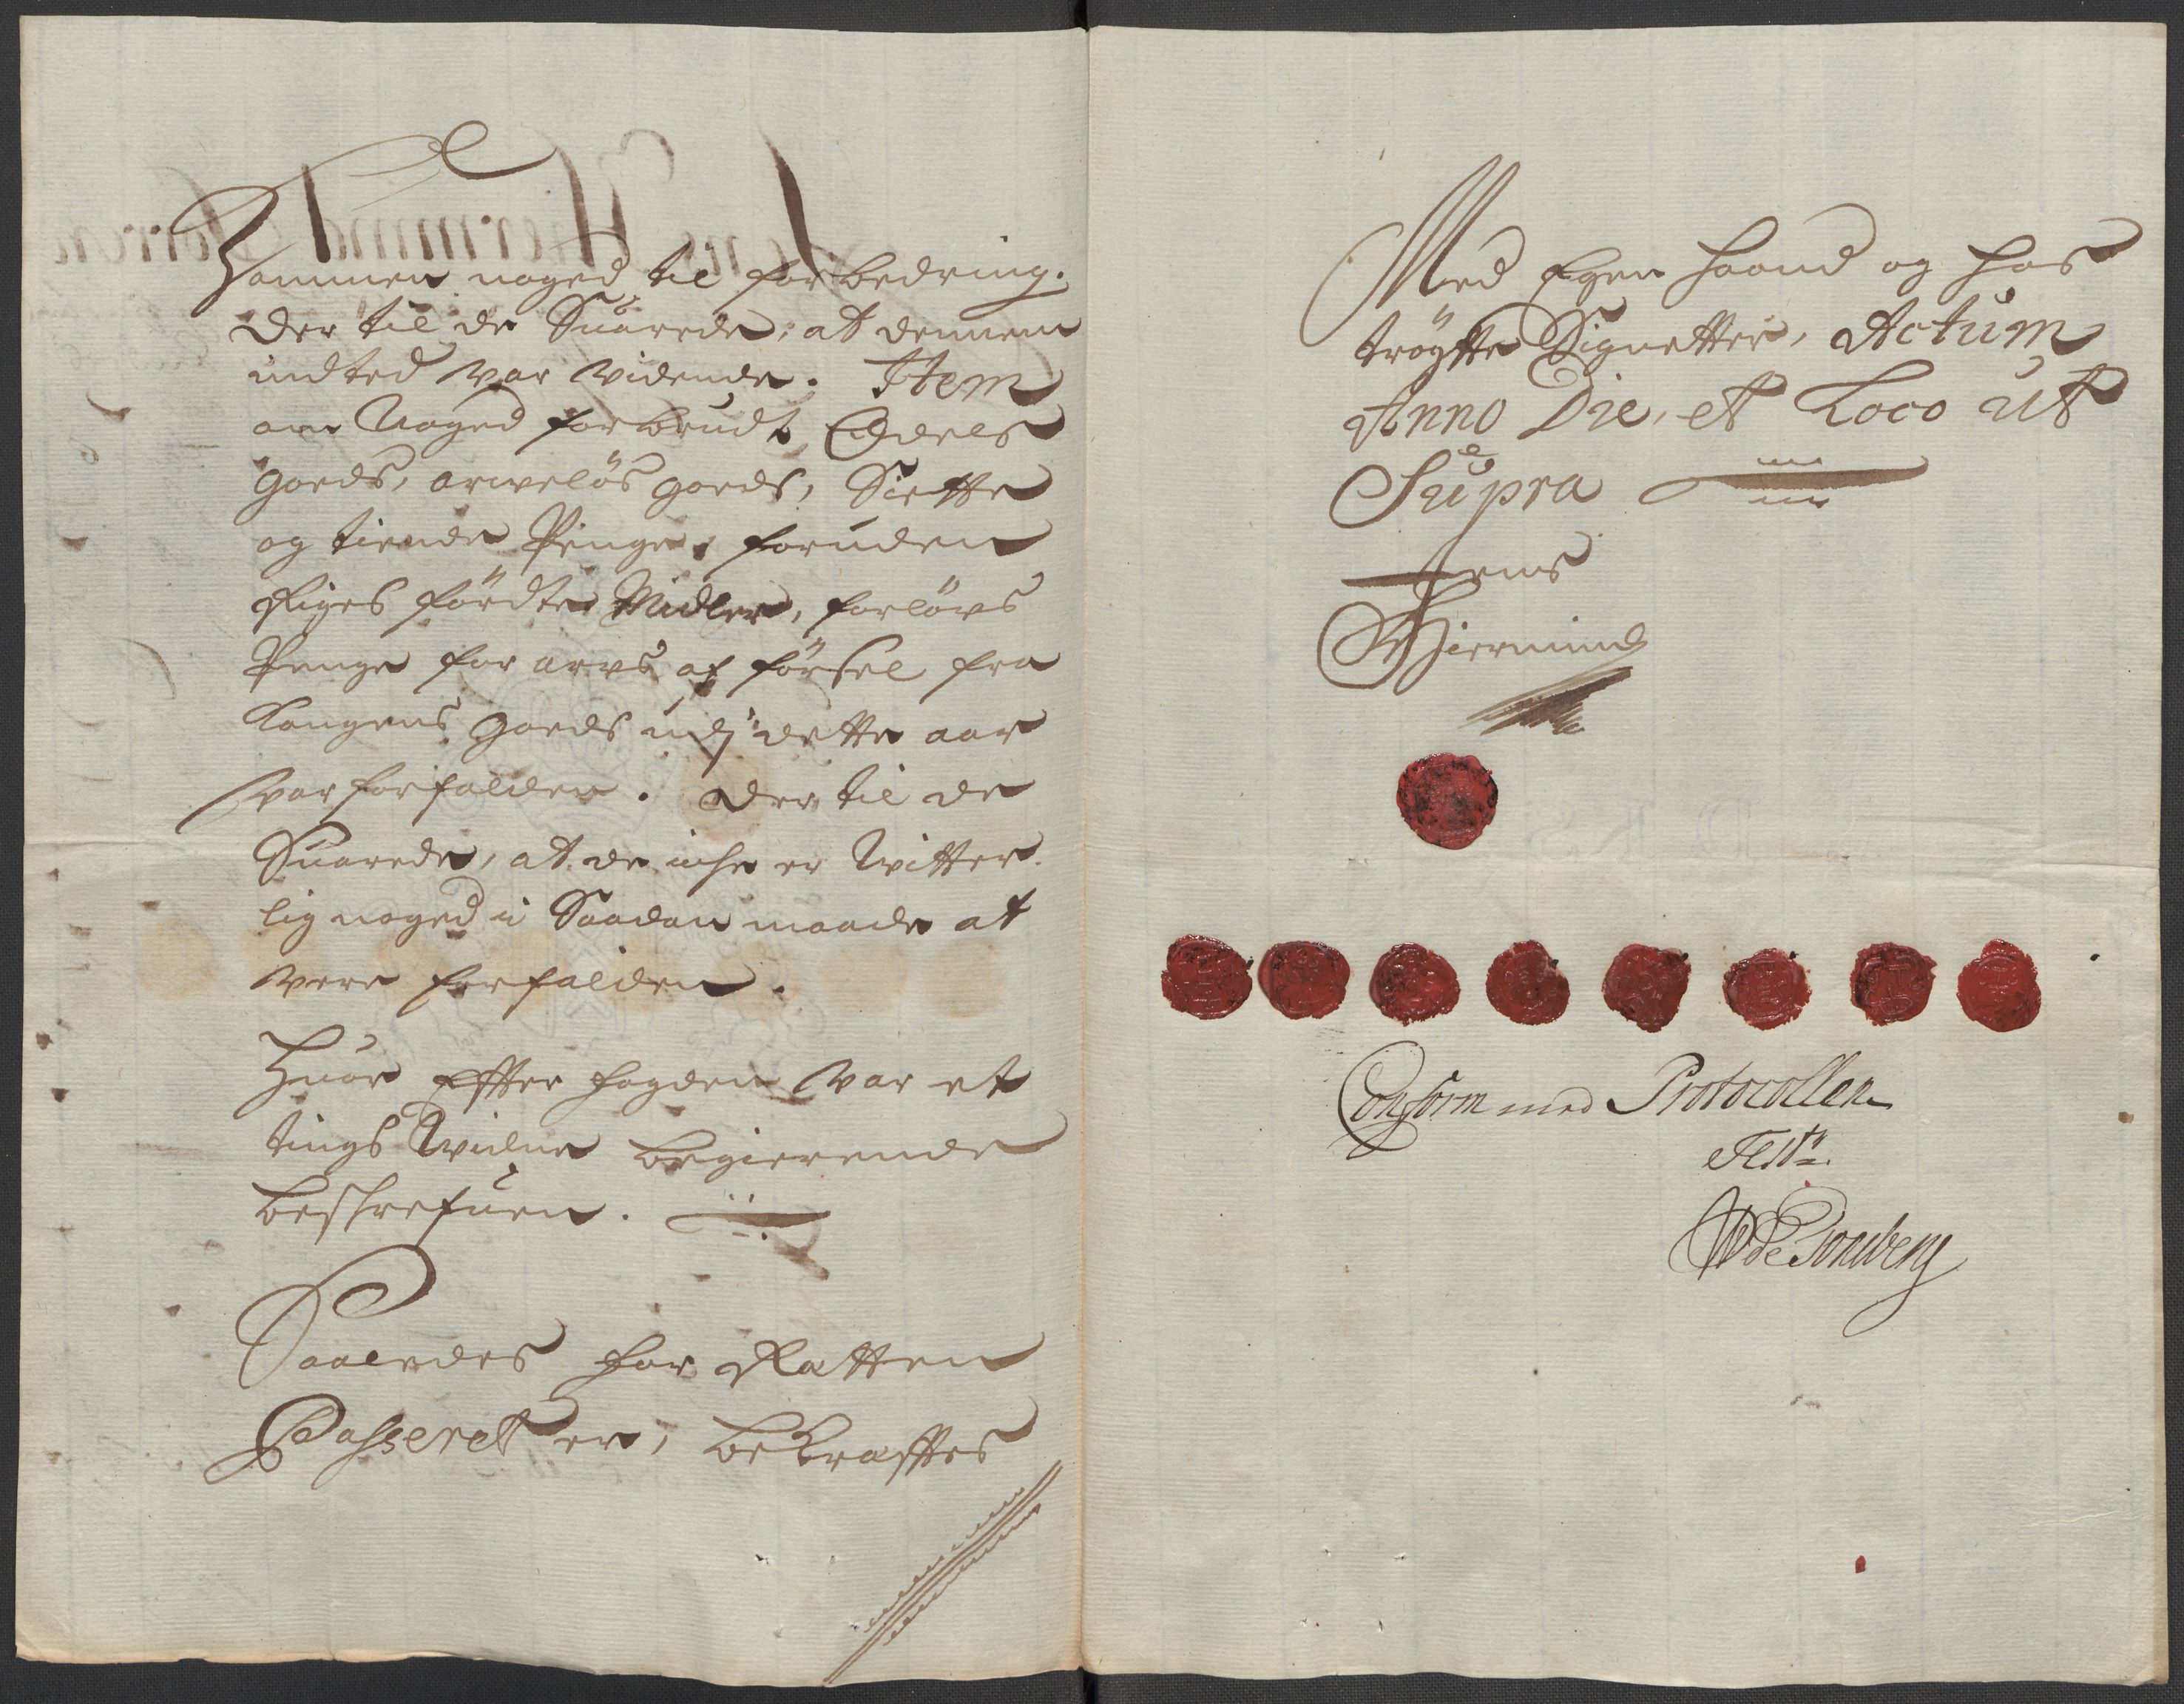 Kommen noged til forbedring.
Der til de Suarede, at dennem
indted var vidende. Item
om Noged forbrudt Odels
goeds, arveløs goeds, Siette
og tiende Penge, foruden
Riges førdte Midler, forløvs
Penge for arvs af førsel fra
Kongens goeds udj dette aar
var forfalden. Der til de
Suarede, at de iche er Witter-
lig noged i Saadan maade at
vere forfalden.
Huor Effter fogden var et
tings Widne begierende
beskrefuen.
Saaledes for Retten
Passeret er, bekrafftes
Med Egen haand og hos
trøgtte Signetter, Actum
Anno Die, et Loco ut
Supra
Jens
Hiermind
Conform med Protocollen
Test:
WdeTonsberg